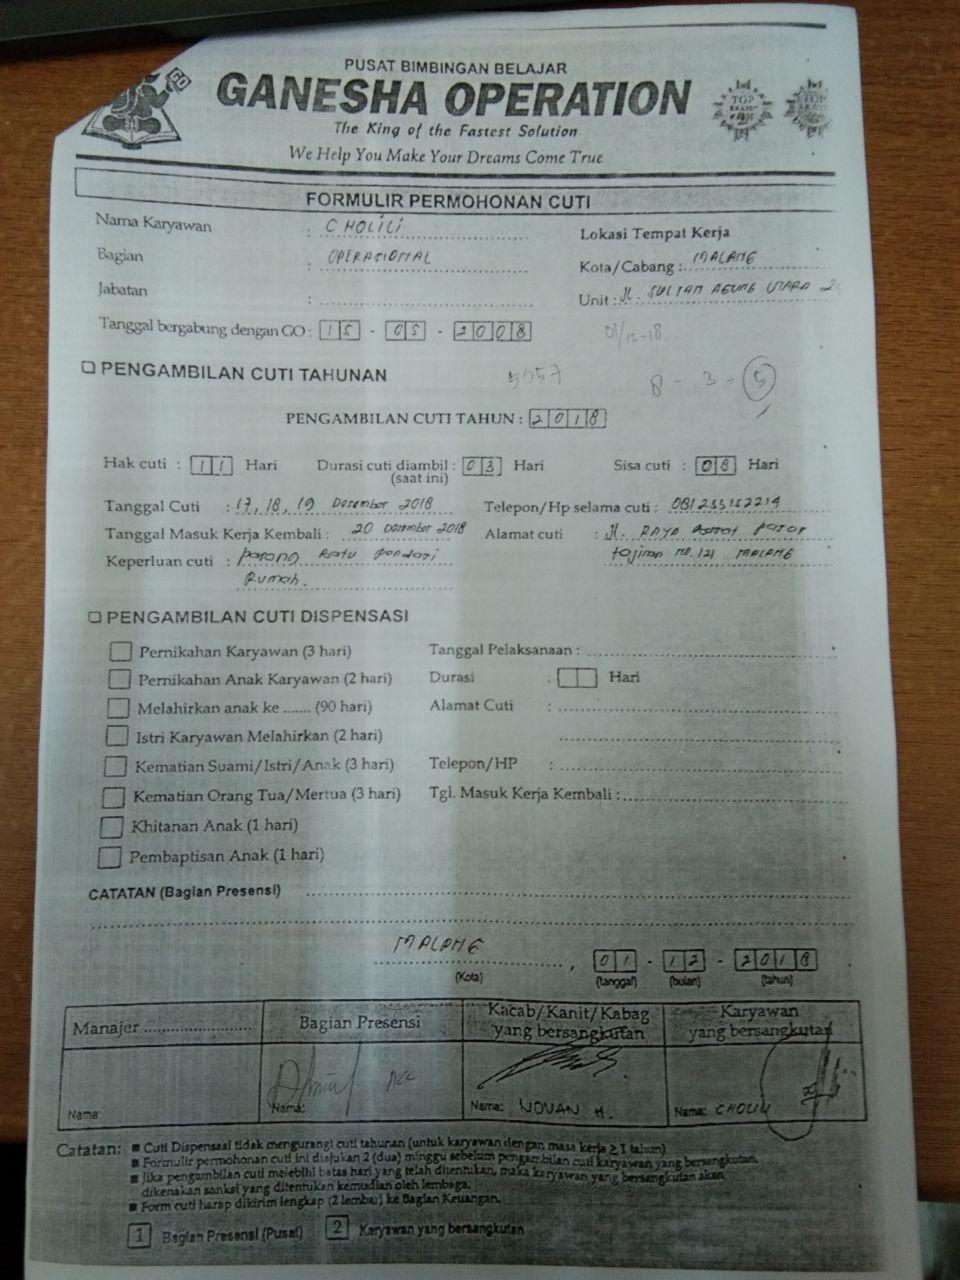 PUSAT BIMBINGAN BELAJAR
GO
GANESHA OPERATION
TOP
TOP
The King of the Fastest Solution
We Help You Make Your Dreams Come True
FORMULIR PERMOHONAN CUTI
Nama Karyawan : CHOLILI
Lokasi Tempat Kerja
Bagian : OPERASIONAL
Kota/Cabang : MALANG
Jabatan :
Unit : Jl. SULTAN AGUNG UTARA
Tanggal bergabung dengan GO : 15 - 05 - 2008
01/12-18
PENGAMBILAN CUTI TAHUNAN
5757
8 - 3 = 5
PENGAMBILAN CUTI TAHUN : 2018
Hak cuti : 11 Hari Durasi cuti diambil : 03 Hari Sisa cuti : 08 Hari
(saat ini)
Tanggal Cuti : 17, 18, 19 Desember 2018 Telepon/Hp selama cuti : 081233152214
Tanggal Masuk Kerja Kembali : 20 Desember 2018 Alamat cuti : Jl. RAYA
Keperluan cuti : pasang Batu pondasi
NO. 121 MALANG
Rumah.
PENGAMBILAN CUTI DISPENSASI
Pernikahan Karyawan (3 hari) Tanggal Pelaksanaan :
Pernikahan Anak Karyawan (2 hari) Durasi : Hari
Melahirkan anak ke ....... (90 hari) Alamat Cuti :
Istri Karyawan Melahirkan (2 hari)
Kematian Suami/Istri/Anak (3 hari) Telepon/HP :
Kematian Orang Tua/Mertua (3 hari) Tgl. Masuk Kerja Kembali :
Khitanan Anak (1 hari)
Pembaptisan Anak (1 hari)
CATATAN (Bagian Presensi)
MALANG , 01 - 12 - 2018
(Kota) (tanggal) (bulan) (tahun)
Manajer ........................
Bagian Presensi
Kacab/Kanit/Kabag
yang bersangkutan
Karyawan
yang bersangkutan
ACC
Nama:
Nama:
Nama: NOVAN H.
Nama: CHOLILI
Catatan: ■ Cuti Dispensasi tidak mengurangi cuti tahunan (untuk karyawan dengan masa kerja ≥ 1 tahun)
■ Formulir permohonan cuti ini diajukan 2 (dua) minggu sebelum pengambilan cuti karyawan yang bersangkutan.
■ Jika pengambilan cuti melebihi batas hari yang telah ditentukan, maka karyawan yang bersangkutan akan
dikenakan sanksi yang ditentukan kemudian oleh lembaga.
■ Form cuti harap dikirim lengkap (2 lembar) ke Bagian Keuangan.
1 Bagian Presensi (Pusat) 2 Karyawan yang bersangkutan